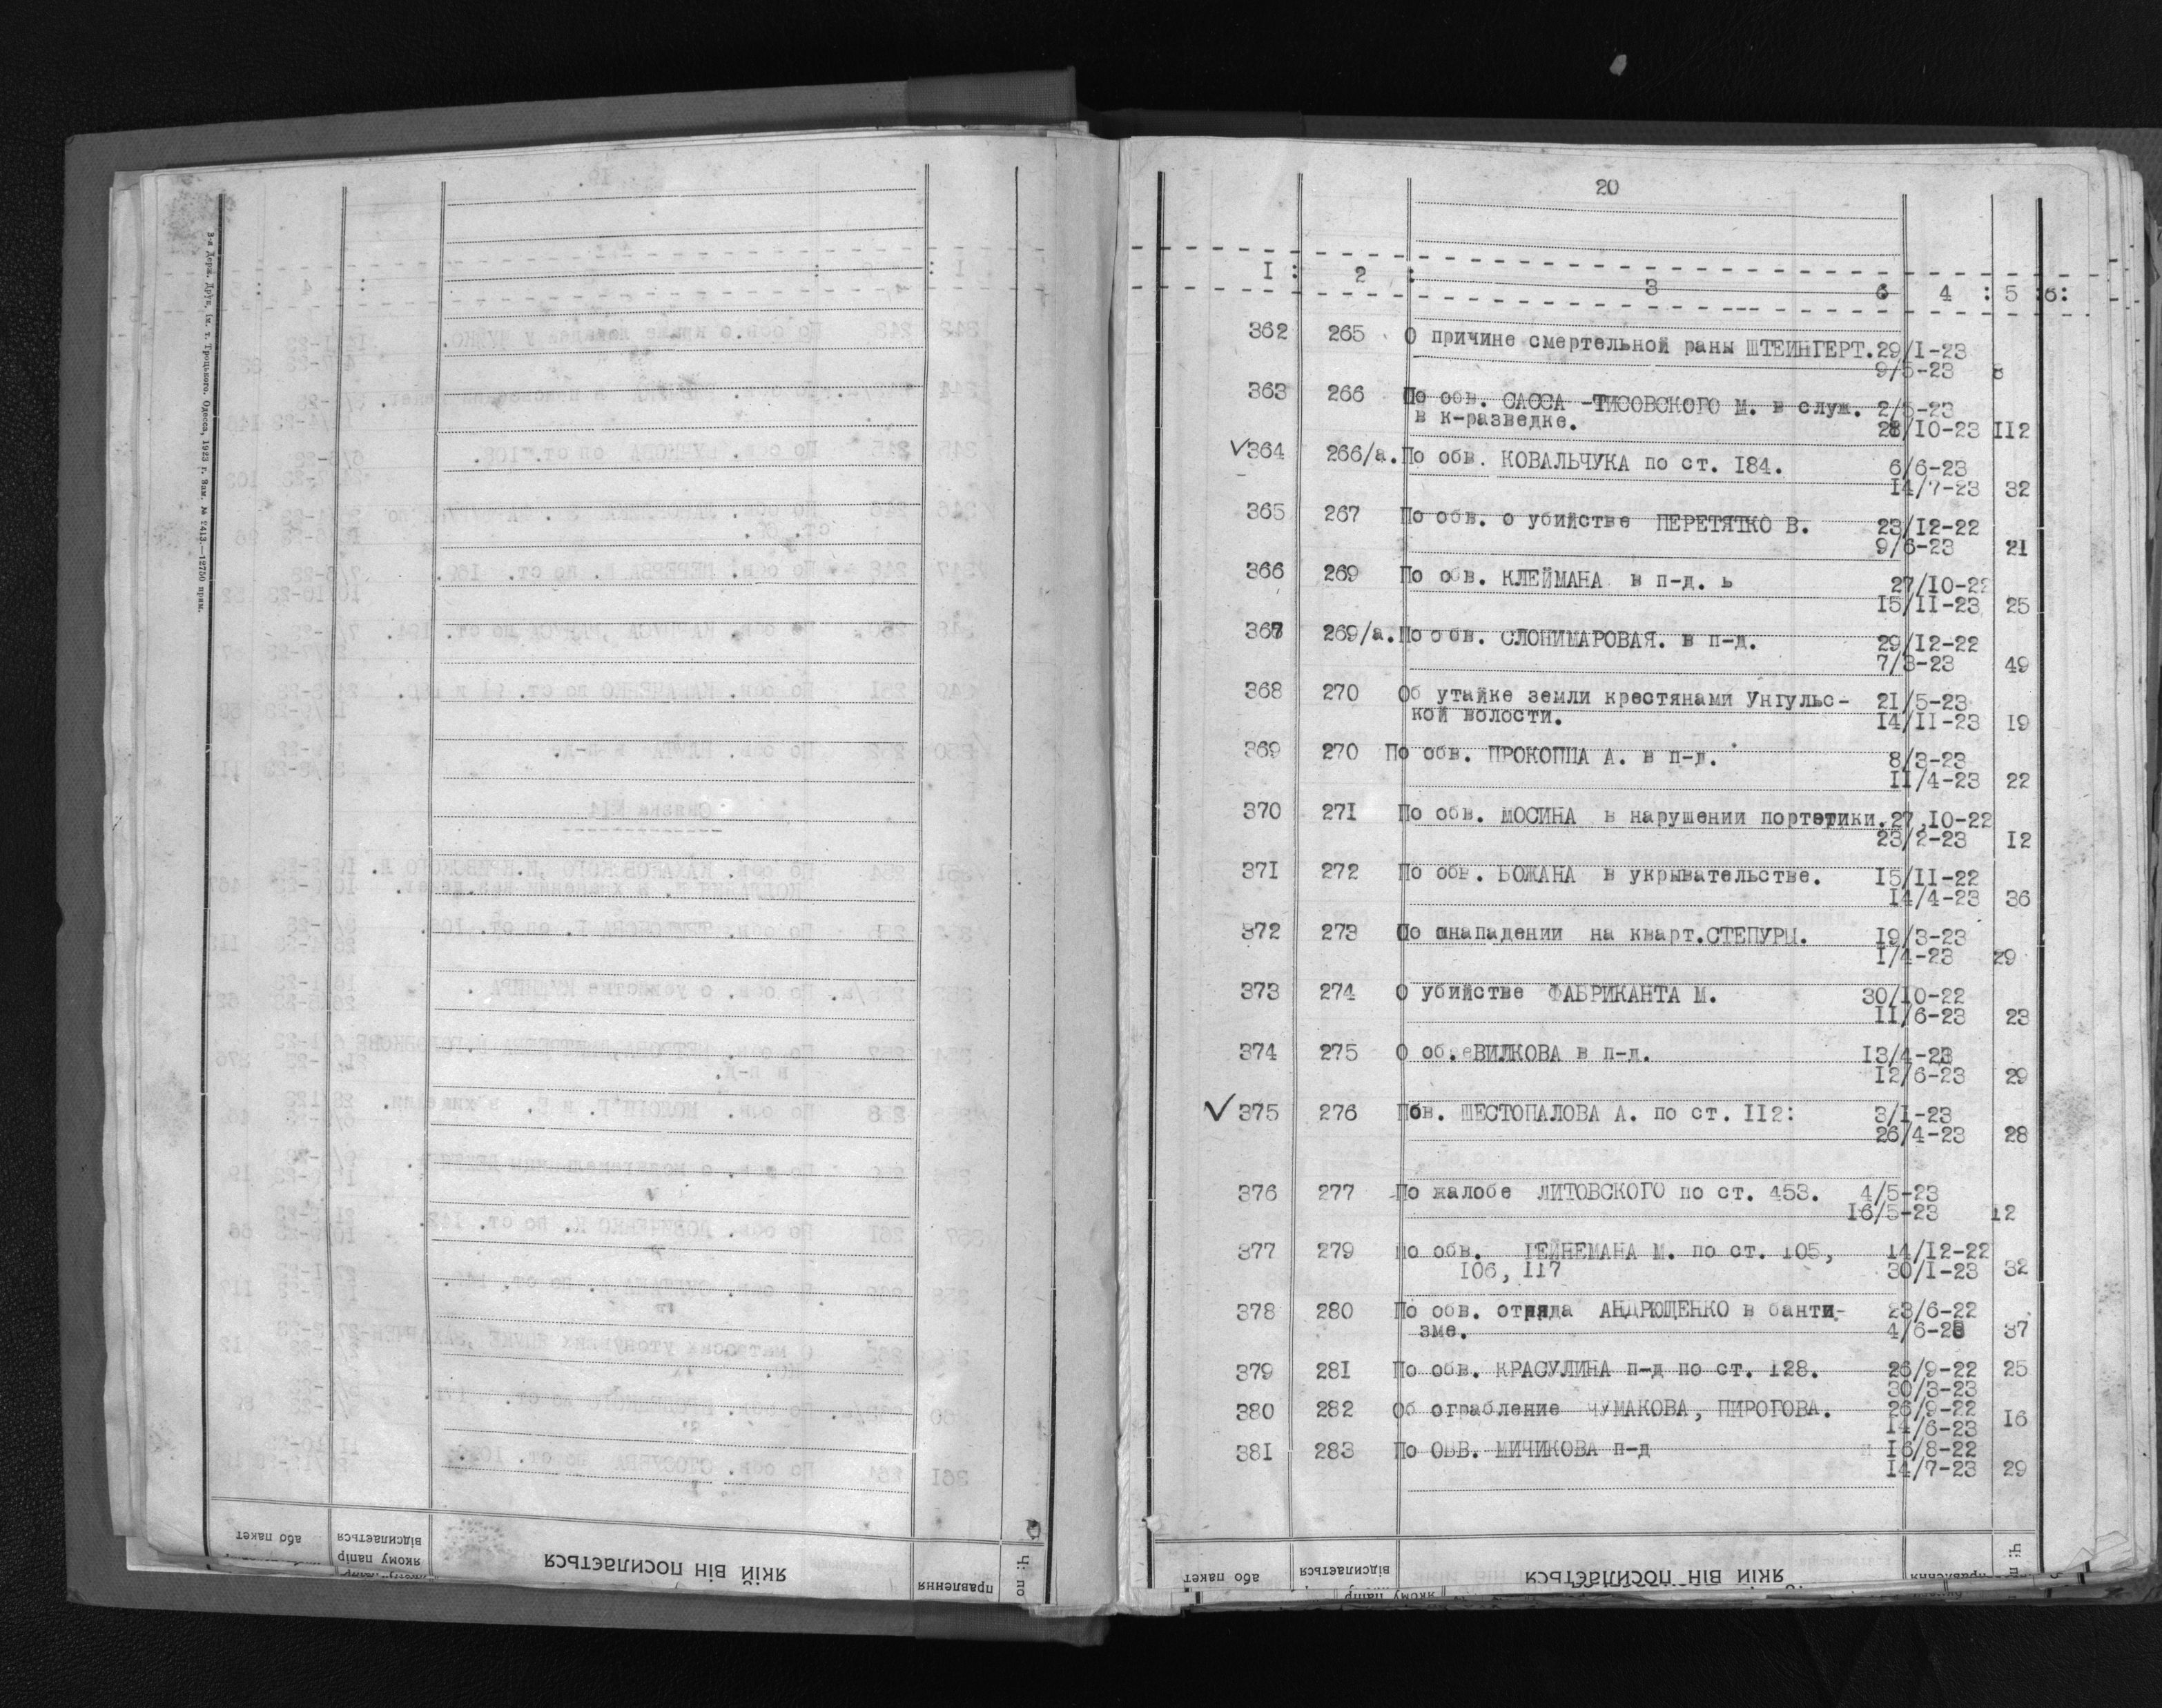 3-я Держ. Друк. ім. т. Троцького. Одесса, 1923 г. Зам. № 2413.—12750 прим.
або пакет
відсилається
якому папір
якій він посилається
правлення
по
20
I : 2 : 3 6 4 : 5 :6:
362 265 О причине смертельной раны ШТЕЙНГЕРТ. 29/I-23
9/5-23 8
363 266 По обв. САССА -ТИСОВСКОГО М. в служ. 2/5-23
в к-разведке. 28/10-23 II2
✓364 266/а. По обв. КОВАЛЬЧУКА по ст. I84. 6/6-23
I4/7-23 32
365 267 По обв. о убийстве ПЕРЕТЯТКО В. 23/I2-22
9/6-23 21
366 269 По обв. КЛЕЙМАНА в п-д. ь 27/I0-22
I5/II-23 25
367 269/а. По обв. СЛОНИМАРОВАЯ. в п-д. 29/I2-22
7/3-23 49
368 270 Об утайке земли крестянами Унгульс- 21/5-23
кой волости. I4/II-23 I9
369 270 По обв. ПРОКОППА А. в п-д. 8/3-23
II/4-23 22
370 27I По обв. МОСИНА в нарушении портэтики. 27,I0-22
23/2-23 I2
37I 272 По обв. БОЖАНА в укрывательстве. I5/II-22
I4/4-23 36
372 273 О нападении на кварт.СТЕПУРЫ. I9/3-23
I/4-23 29
373 274 О убийстве ФАБРИКАНТА М. 30/I0-22
II/6-23 23
374 275 О обв. ВИЛКОВА в п-д. I3/4-23
I2/6-23 29
✓375 276 Пбв. ШЕСТОПАЛОВА А. по ст. II2: 3/I-23
26/4-23 28
376 277 По жалобе ЛИТОВСКОГО по ст. 453. 4/5-23
I6/5-23 12
377 279 По обв. ГЕЙНЕМАНА М. по ст. I05, I4/I2-22
I06, II7 30/I-23 32
378 280 По обв. отряда АНДРЮЩЕНКО в банти- 23/6-22
зме. 4/6-23 37
379 28I По обв. КРАСУЛИНА п-д по ст. I28. 26/9-22 25
30/3-23
380 282 Об ограбление ЧУМАКОВА, ПИРОГОВА. 26/9-22
I4/6-23 I6
38I 283 По ОБВ. МИЧИКОВА п-д I6/8-22
I4/7-23 29
або пакет
відсилається
якому папір
якій він посилається